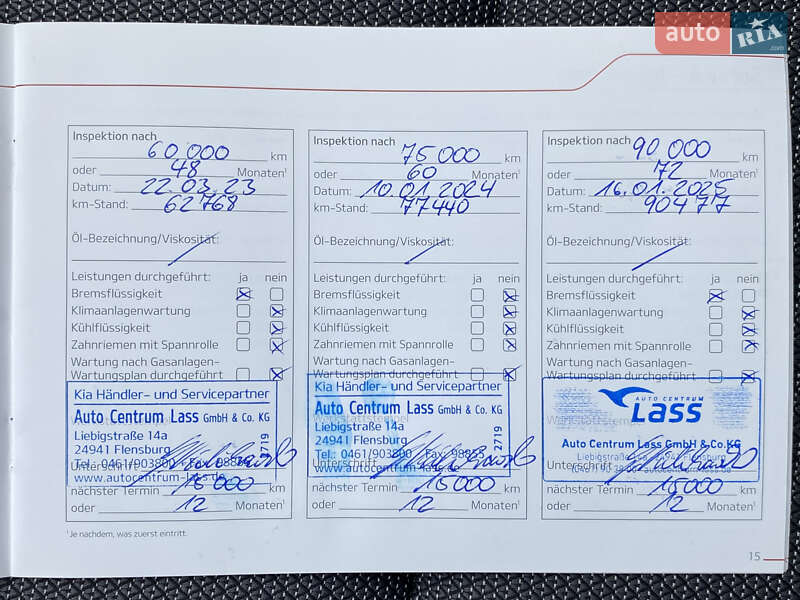 auto RIA .com
Inspektion nach
60 000 km
oder 48 Monaten¹
Datum: 22.03.23
km-Stand: 62768
Öl-Bezeichnung/Viskosität:
Leistungen durchgeführt: ja nein
Bremsflüssigkeit
Klimaanlagenwartung
Kühlflüssigkeit
Zahnriemen mit Spannrolle
Wartung nach Gasanlagen-
Wartungsplan durchgeführt
Kia Händler- und Servicepartner
Auto Centrum Lass GmbH & Co. KG
Liebigstraße 14a
24941 Flensburg
2719
Unterschrift
www.autocentrum-lass.de
nächster Termin 15 000 km
oder 12 Monaten¹
Inspektion nach
75 000 km
oder 60 Monaten¹
Datum: 10.01.2024
km-Stand: 77440
Öl-Bezeichnung/Viskosität:
Leistungen durchgeführt: ja nein
Bremsflüssigkeit
Klimaanlagenwartung
Kühlflüssigkeit
Zahnriemen mit Spannrolle
Wartung nach Gasanlagen-
Wartungsplan durchgeführt
Kia Händler- und Servicepartner
Auto Centrum Lass GmbH & Co. KG
Liebigstraße 14a
24941 Flensburg
2719
Tel.: 0461/903800 Fax: 98855
Unterschrift
www.autocentrum-lass.de
nächster Termin 15000 km
oder 12 Monaten¹
Inspektion nach
90 000 km
oder 72 Monaten¹
Datum: 16.01.2025
km-Stand: 90477
Öl-Bezeichnung/Viskosität:
Leistungen durchgeführt: ja nein
Bremsflüssigkeit
Klimaanlagenwartung
Kühlflüssigkeit
Zahnriemen mit Spannrolle
Wartung nach Gasanlagen-
Wartungsplan durchgeführt
AUTO CENTRUM
Lass
Auto Centrum Lass GmbH & Co. KG
Unterschrift
nächster Termin 15000 km
oder 12 Monaten¹
¹Je nachdem, was zuerst eintritt.
15